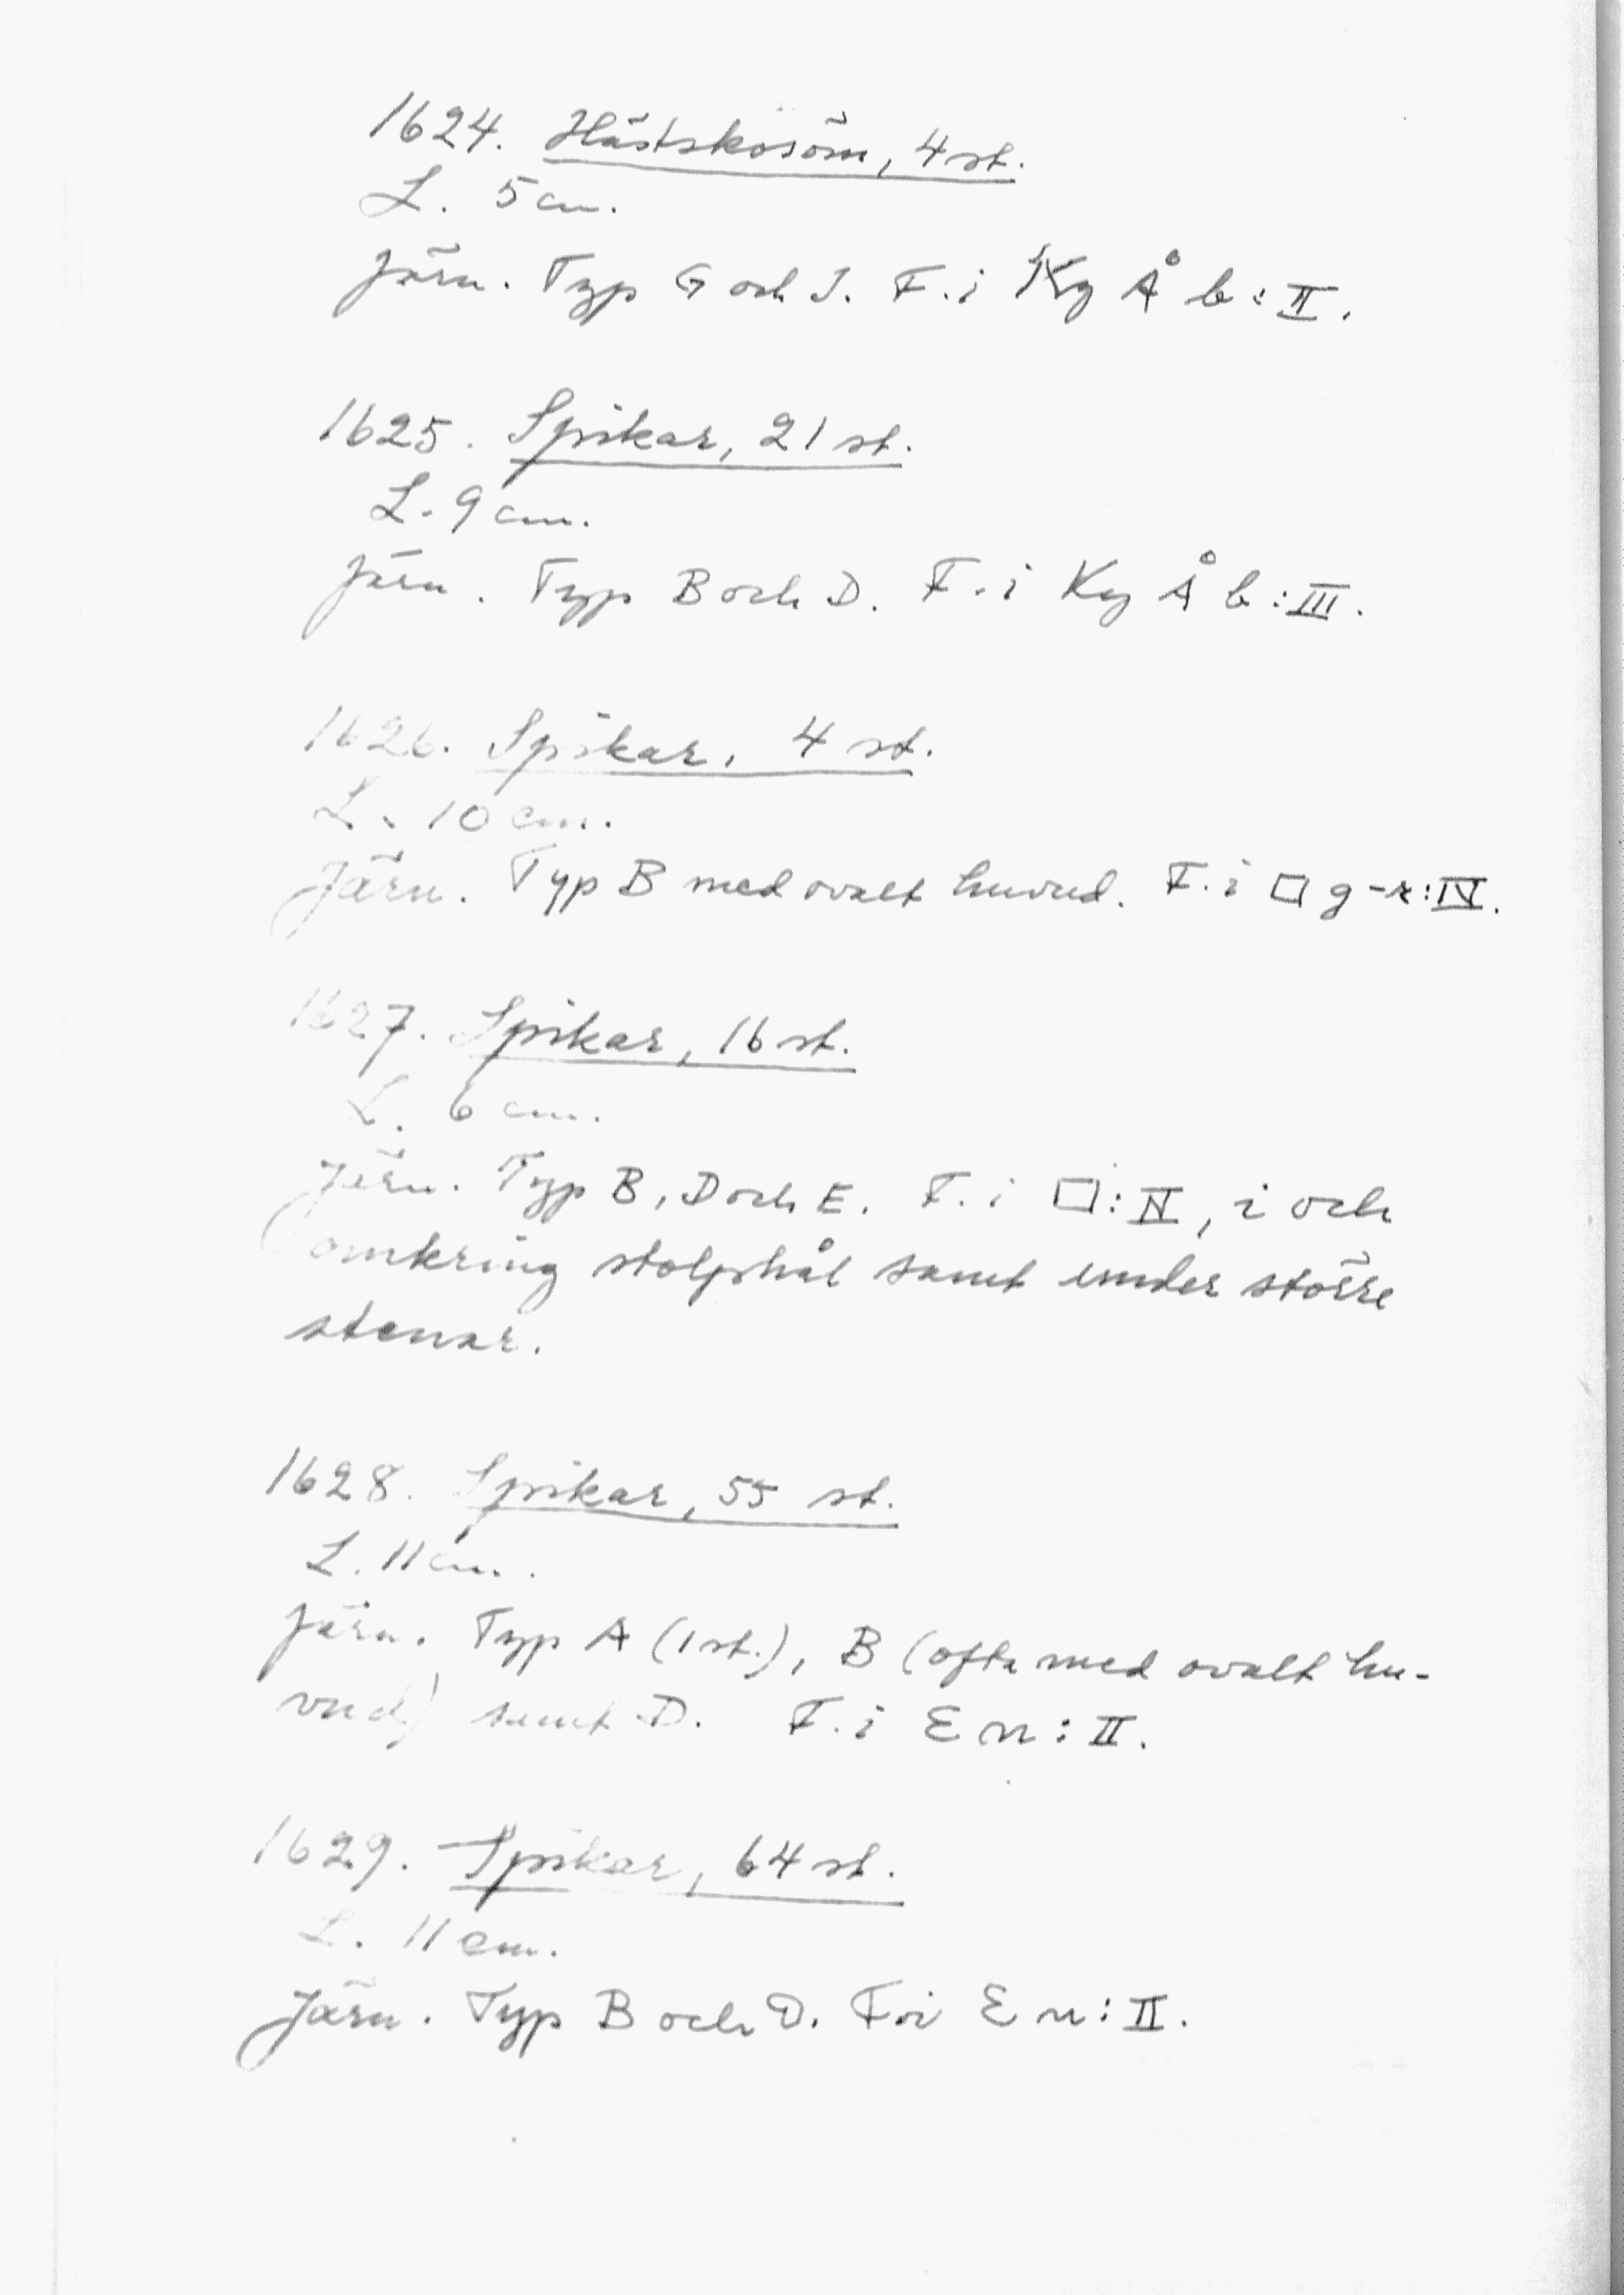 1624. Hästskosöm, 4 st.
L. 5 cm.
Järn. Typ G och J. F. i Kg Å b: II.
1625. Spikar, 21 st.
L. 9 cm.
Järn. Typ B och D. F. i Kg Å b: III.
1626. Spikar, 4 st.
L. 10 cm.
Järn. Typ B med ovalt huvud. F. i □ g-r: IV.
1627. Spikar, 16 st.
L. 6 cm.
Järn. Typ B, D och E. F. i □: IV, i och
omkring stolphål samt under större
stenar.
1628. Spikar, 55 st.
L. 11 cm.
Järn. Typ A (1 st.), B (ofta med ovalt hu-
vud) samt D. F. i E n: II.
1629. Spikar, 64 st.
L. 11 cm.
Järn. Typ B och D. F. i E n: II.